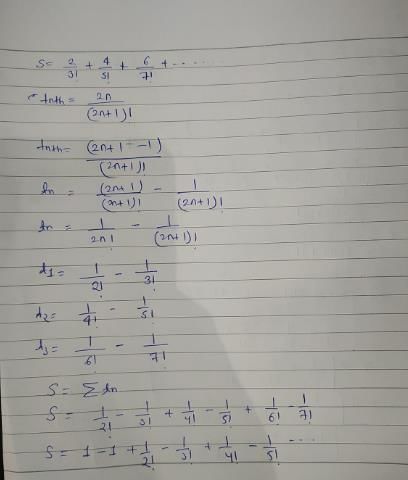 S = 2/3! + 4/5! + 6/7! + ......
tnth = 2n/(2n+1)!
tnth = (2n+1-1)/(2n+1)!
tn = (2n+1)/(2n+1)! - 1/(2n+1)!
tn = 1/2n! - 1/(2n+1)!
t1 = 1/2! - 1/3!
t2 = 1/4! - 1/5!
t3 = 1/6! - 1/7!
S = Σtn
S = 1/2! - 1/3! + 1/4! - 1/5! + 1/6! - 1/7!
S = 1 - 1 + 1/2! - 1/3! + 1/4! - 1/5! ...